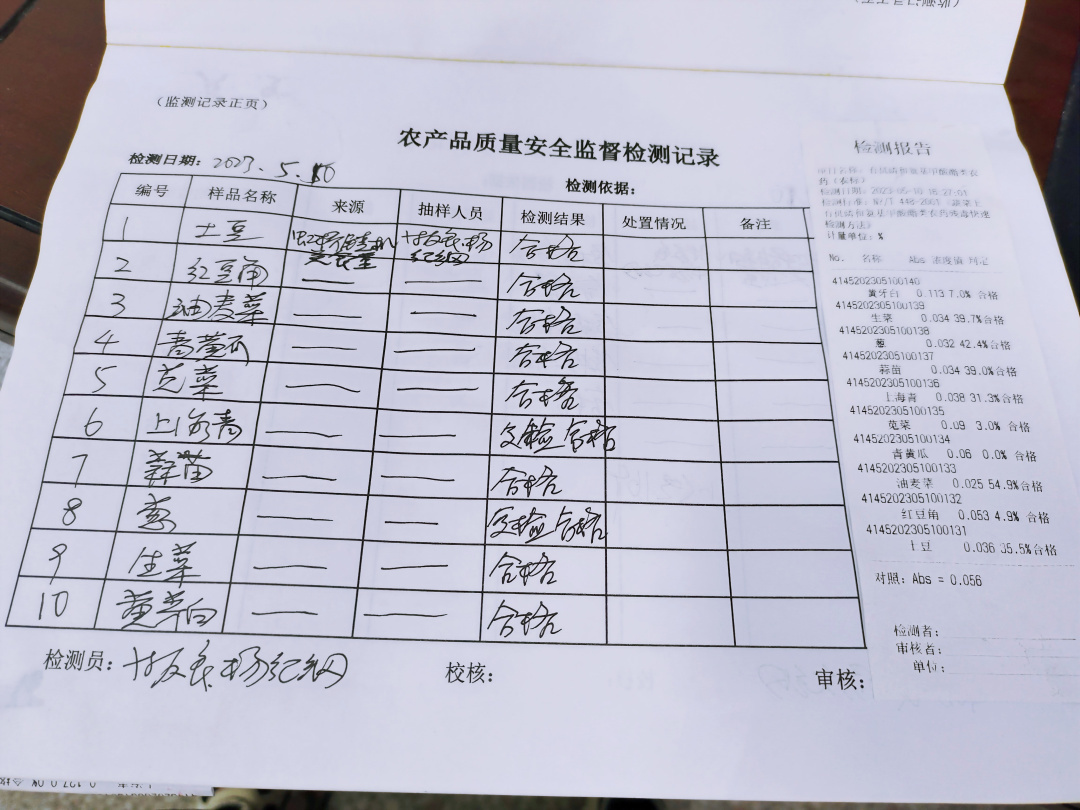 （监测记录正页）
农产品质量安全监督检测记录
检测日期：2023.5.10
检测依据：
编号 样品名称 来源 抽样人员 检测结果 处置情况 备注
1 土豆 合格
2 红豆角 — — 合格
3 油麦菜 — — 合格
4 青黄瓜 — — 合格
5 苋菜 — — 合格
6 上海青 — — 复检合格
7 蒜苗 — — 合格
8 葱 — — 复检合格
9 生菜 — — 合格
10 黄牙白 — — 合格
检测员：
校核：
审核：
检测报告
项目名称：有机磷和氨基甲酸酯类农
药（农标）
检测日期：2023-05-10
检测标准：NY/T 448-2001《蔬菜上
有机磷和氨基甲酸酯类农药残毒快速
检测方法》
计量单位：%
No. 名称 Abs 浓度值 判定
4145202305100140
黄牙白 0.113 7.0% 合格
4145202305100139
生菜 0.034 39.7%合格
4145202305100138
葱 0.032 42.4%合格
4145202305100137
蒜苗 0.034 39.0%合格
4145202305100136
上海青 0.038 31.3%合格
4145202305100135
苋菜 0.09 3.0% 合格
4145202305100134
青黄瓜 0.06 0.0% 合格
4145202305100133
油麦菜 0.025 54.9%合格
4145202305100132
红豆角 0.053 4.9% 合格
4145202305100131
土豆 0.036 35.5%合格
对照：Abs = 0.056
检测者：
审核者：
单位：